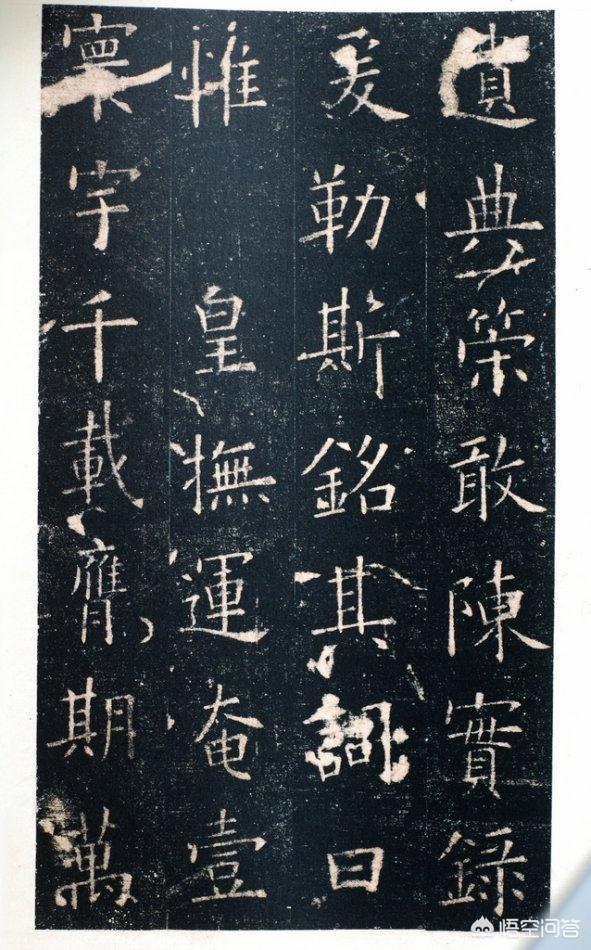 遺典策敢陳實錄
爰勒斯銘其詞曰
惟 皇撫運奄壹
寰宇千載膺期萬
悟空问答